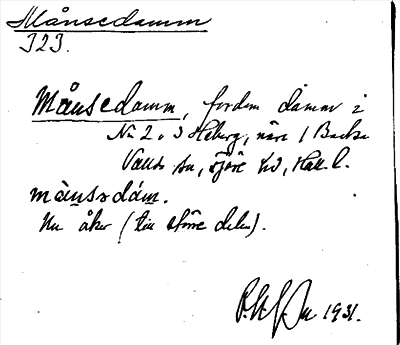 Månsedamm
323.
Månsedamm, fordom damm i
No 2 o 3 Heberg, nära 1 Backa
sn, hd, Hall. l.
månsədám.
Nu åker (till större delen).
1931.